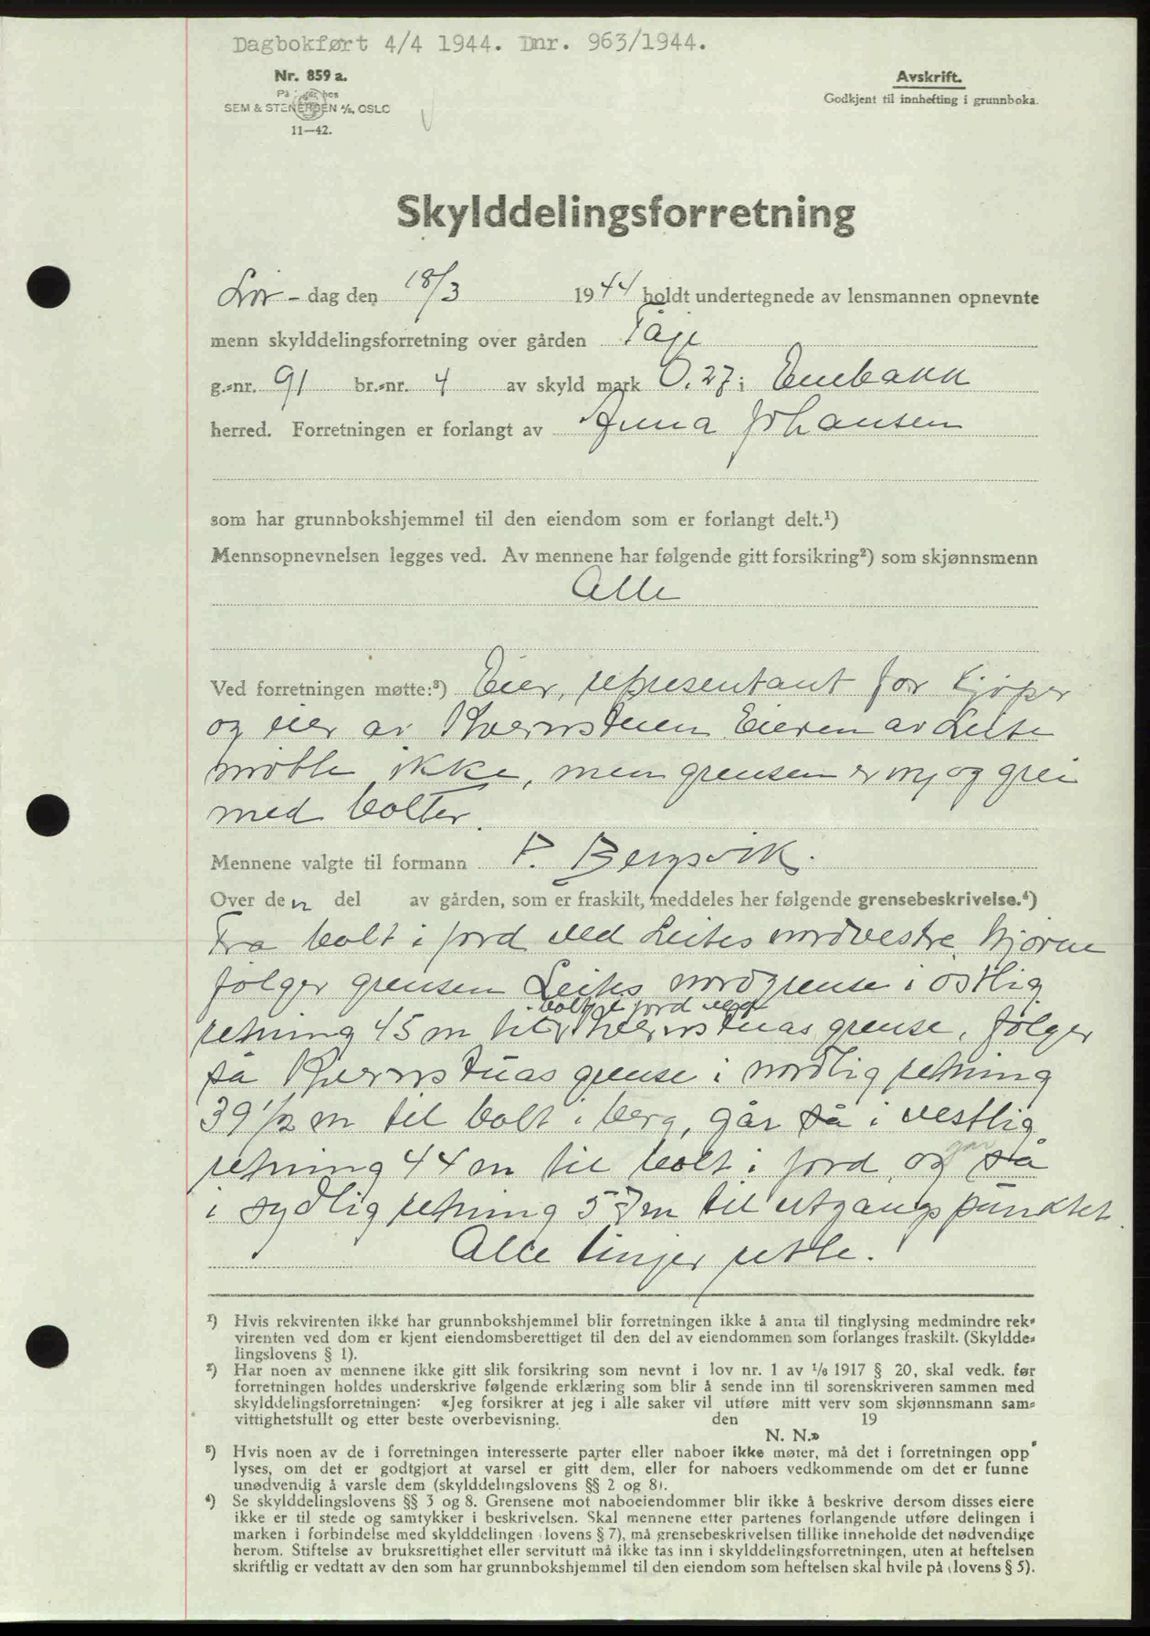 Dagbokført 4/4 1944. Dnr. 963/1944.
Nr. 859 a.
På lager hos
SEM & STENERSEN A/S, OSLO
11—42.
Avskrift.
Godkjent til innhefting i grunnboka.
Skylddelingsforretning
Lør-dag den 18/3 1944 holdt undertegnede av lensmannen opnevnte
menn skylddelingsforretning over gården Tåje
g.-nr. 91 br.-nr. 4 av skyld mark 0.27 i Enebakk
herred. Forretningen er forlangt av Anna Johansen
som har grunnbokshjemmel til den eiendom som er forlangt delt.¹)
Mennsopnevnelsen legges ved. Av mennene har følgende gitt forsikring²) som skjønnsmenn
Alle
Ved forretningen møtte:³) Eier, representant for kjøper
og eier av Kvernstuen Eieren av Leite
møtte ikke, men grensen er ny og grei
med bolter.
Mennene valgte til formann P. Bergsvik.
Over den del av gården, som er fraskilt, meddeles her følgende grensebeskrivelse.⁴)
Fra bolt i jord ved Leites nordvestre hjørne
følger grensen Leites nordgrense i østlig
bolt i jord ved
retning 45 m til Kvernstuas grense, følger
så Kvernstuas grense i nordlig retning
39 1/2 m til bolt i berg, går så i vestlig
retning 44 m til bolt i jord og går så
i sydlig retning 57 m til utgangspunktet.
Alle linjer rette.
¹) Hvis rekvirenten ikke har grunnbokshjemmel blir forretningen ikke å anta til tinglysing medmindre rek-
virenten ved dom er kjent eiendomsberettiget til den del av eiendommen som forlanges fraskilt. (Skyldde-
lingslovens § 1).
²) Har noen av mennene ikke gitt slik forsikring som nevnt i lov nr. 1 av ¹/₆ 1917 § 20, skal vedk. før
forretningen holdes underskrive følgende erklæring som blir å sende inn til sorenskriveren sammen med
skylddelingsforretningen: «Jeg forsikrer at jeg i alle saker vil utføre mitt verv som skjønnsmann sam-
vittighetsfullt og etter beste overbevisning. den 19
N. N.»
³) Hvis noen av de i forretningen interesserte parter eller naboer ikke møter, må det i forretningen opp-
lyses, om det er godtgjort at varsel er gitt dem, eller for naboers vedkommende om det er funne
unødvendig å varsle dem (skylddelingslovens §§ 2 og 8).
⁴) Se skylddelingslovens §§ 3 og 8. Grensene mot naboeiendommer blir ikke å beskrive dersom disses eiere
ikke er til stede og samtykker i beskrivelsen. Skal mennene etter partenes forlangende utføre delingen i
marken i forbindelse med skylddelingen (lovens § 7), må grensebeskrivelsen tillike inneholde det nødvendige
herom. Stiftelse av bruksrettighet eller servitutt må ikke tas inn i skylddelingsforretningen, uten at heftelsen
skriftlig er vedtatt av den som har grunnbokshjemmel til den eiendom som heftelsen skal hvile på (lovens § 5).